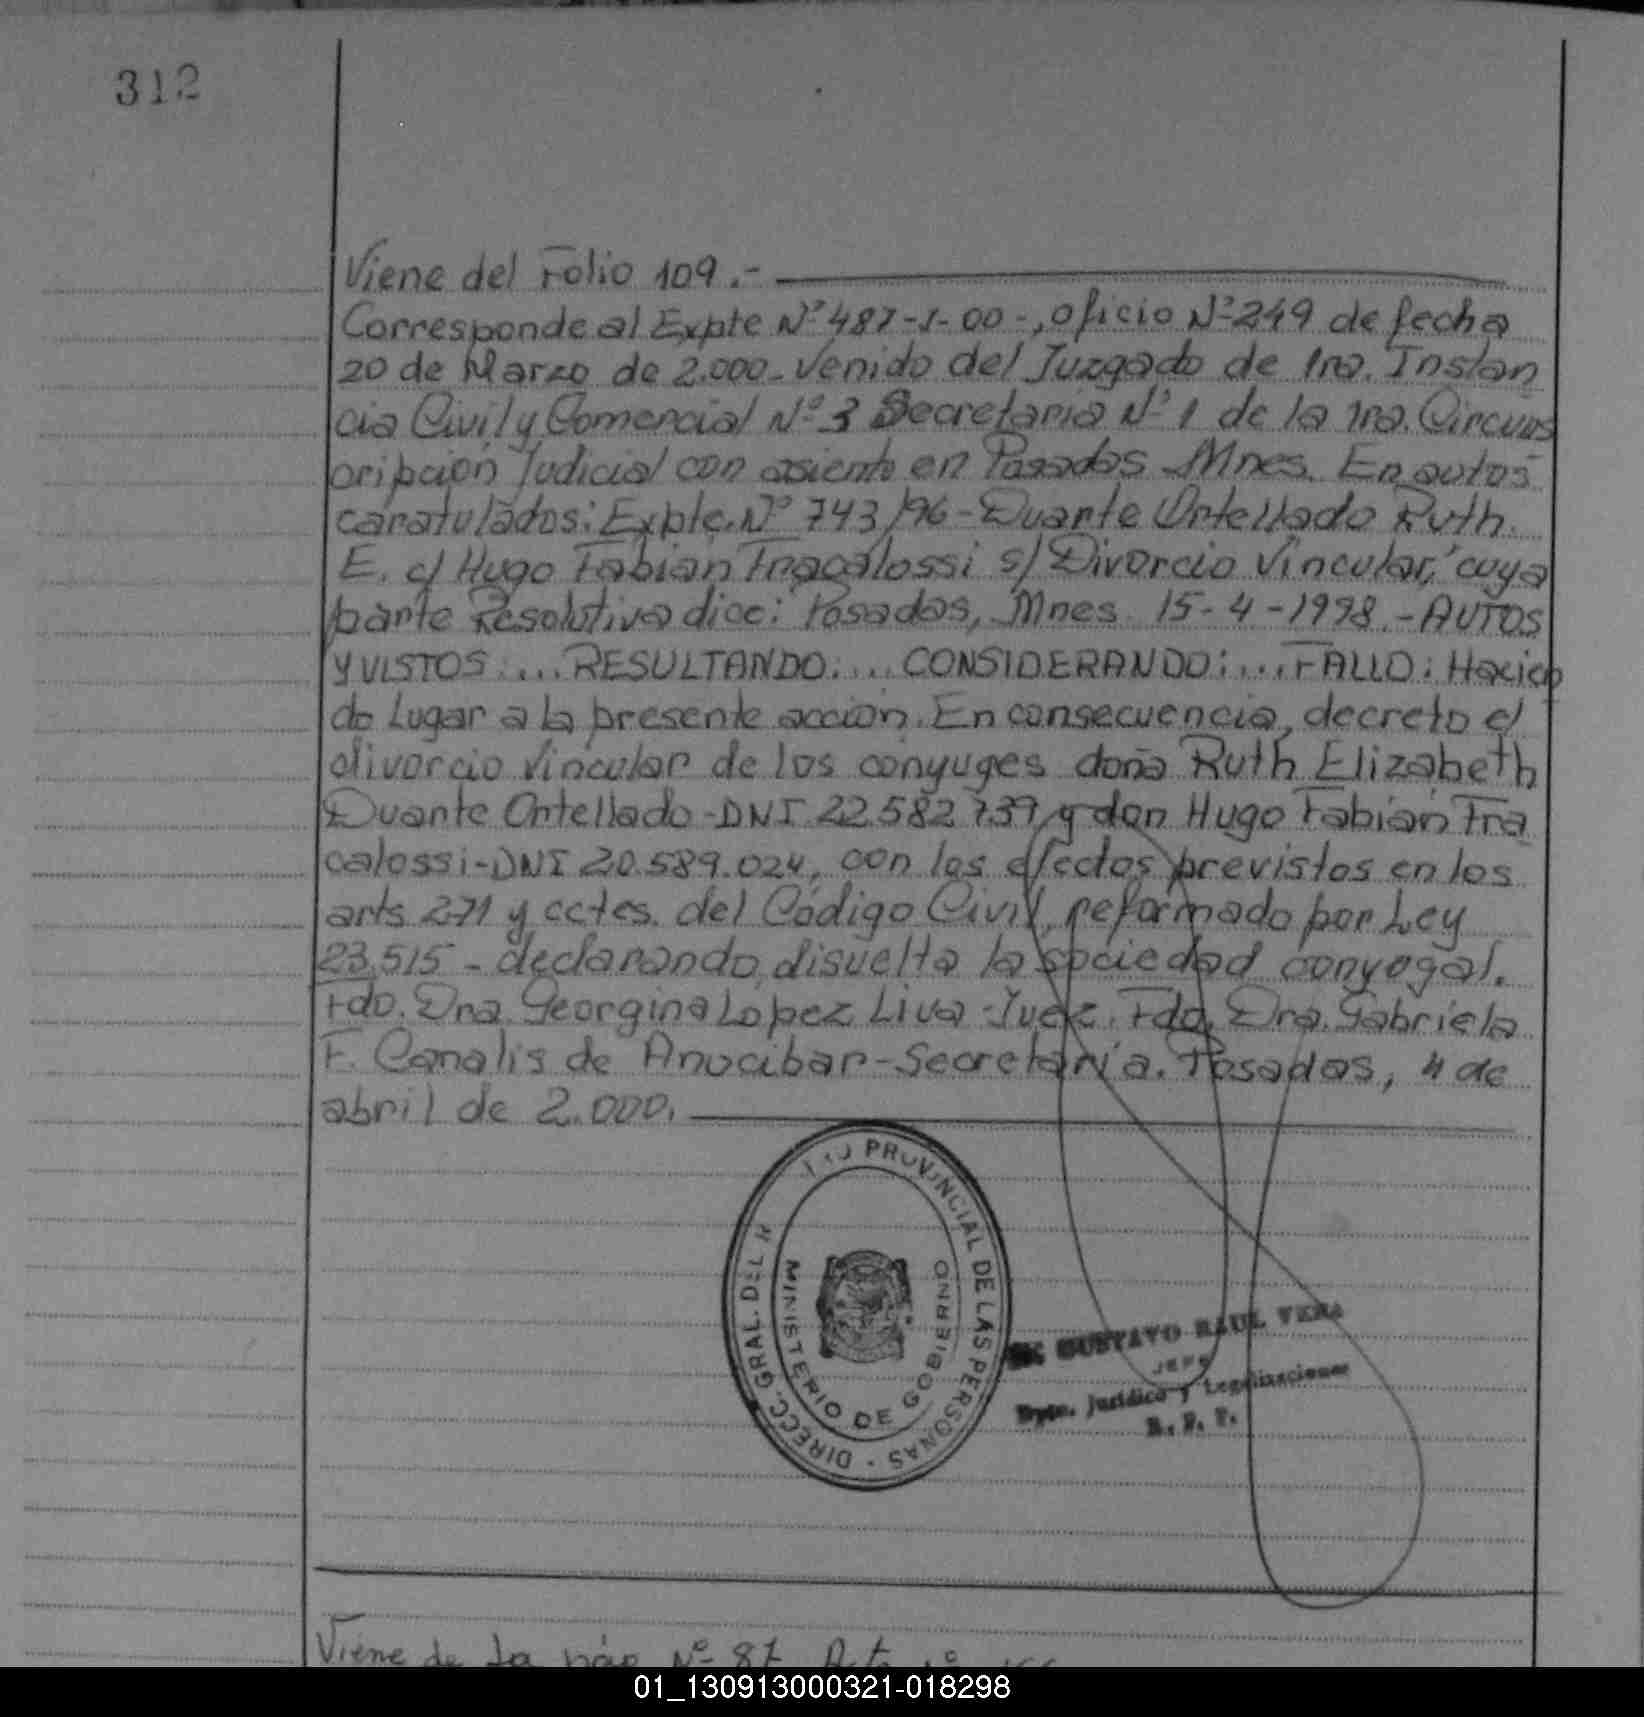 312
Viene del Folio 109.-
Corresponde al Expte Nº 487-1-00-, oficio Nº 249 de fecha
20 de Marzo de 2.000- Venido del Juzgado de 1ra. Instan
cia Civil y Comercial Nº 3 Secretaria Nº 1 de la 1ra. Circuns
cripción Judicial con asiento en Posadas Mnes. En autos
caratulados: Expte. Nº 743/96- Duarte Ortellado Ruth.
E. c/ Hugo Fabián Fracalossi s/ Divorcio Vincular, cuya
parte Resolutiva dice: Posadas, Mnes. 15-4-1998.- AUTOS
Y VISTOS:... RESULTANDO:... CONSIDERANDO:... FALLO: Hacien
do Lugar a la presente acción. En consecuencia, decreto el
divorcio vincular de los conyuges doña Ruth Elizabeth
Duarte Ortellado-DNI 22.582.739 y don Hugo Fabián Fra
calossi-DNI 20.589.024, con los efectos previstos en los
arts 271 y cctes. del Código Civil, reformado por Ley
23.515 - declarando disuelta la sociedad conyugal.
Fdo. Dra. Georgina Lopez Liva-Juez. Fdo. Dra. Gabriela
F. Canalis de Anocibar-Secretaría. Posadas, 4 de
abril de 2.000.
DIRECC. GRAL. DEL R PROVINCIAL DE LAS PERSONAS
MINISTERIO DE GOBIERNO
GUSTAVO RAUL VERA
JEFE
Dpto. Jurídico y Legalizaciones
R. P. P.
Viene de la pág Nº 87
01_130913000321-018298